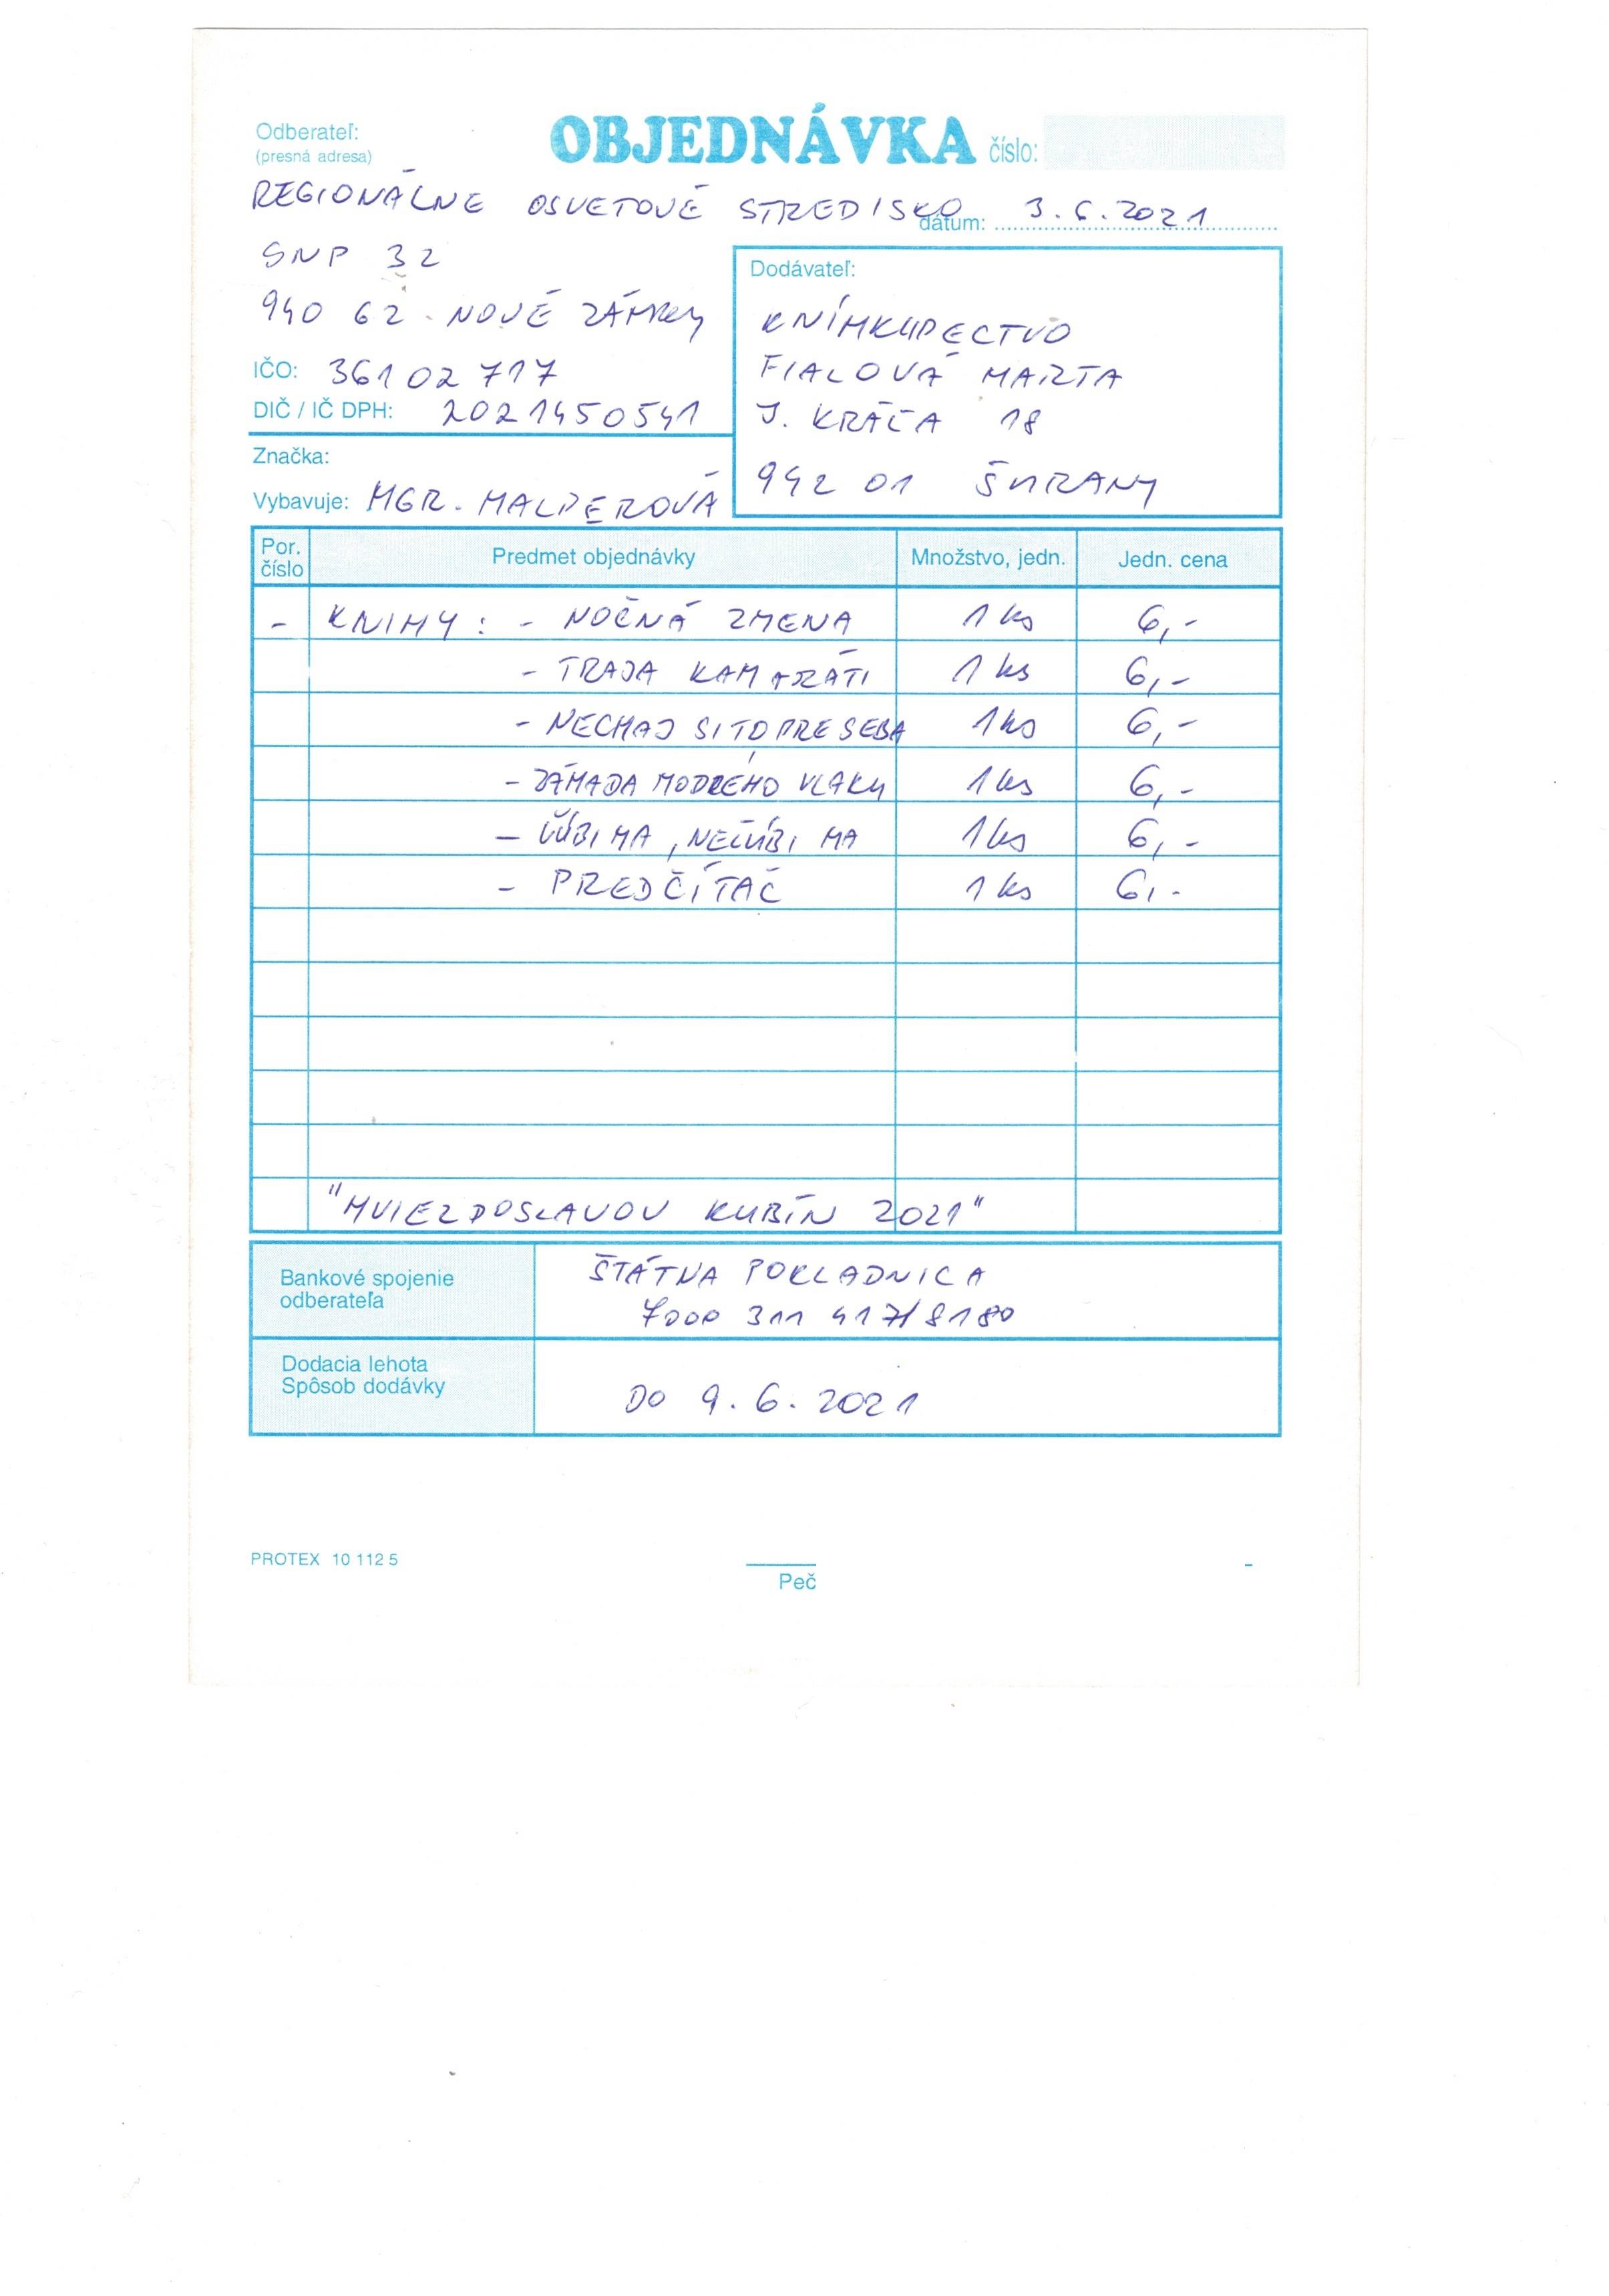 Odberateľ:
(presná adresa)
OBJEDNÁVKA číslo:
REGIONÁLNE OSVETOVÉ STREDISKO
dátum: 3.6.2021
SNP 32
940 62 NOVÉ ZÁMKY
IČO: 36102717
DIČ / IČ DPH: 2021450541
Značka:
Vybavuje: MGR. MALPEROVÁ
Dodávateľ:
KNÍHKUPECTVO
FIALOVÁ MARTA
J. KRÁĽA 18
942 01 ŠURANY
Por. číslo Predmet objednávky Množstvo, jedn. Jedn. cena
- KNIHY: - NOČNÁ ZMENA 1 ks 6,-
- TRAJA KAMARÁTI 1 ks 6,-
- NECHAJ SI TO PRE SEBA 1 ks 6,-
- ZÁHADA MODRÉHO VLAKU 1 ks 6,-
- ĽÚBI MA, NEĽÚBI MA 1 ks 6,-
- PREDČÍTAČ 1 ks 6,-
"HVIEZDOSLAVOV KUBÍN 2021"
Bankové spojenie
odberateľa
ŠTÁTNA POKLADNICA
7000 311 417/8180
Dodacia lehota
Spôsob dodávky
DO 9.6.2021
PROTEX 10 112 5
Peč